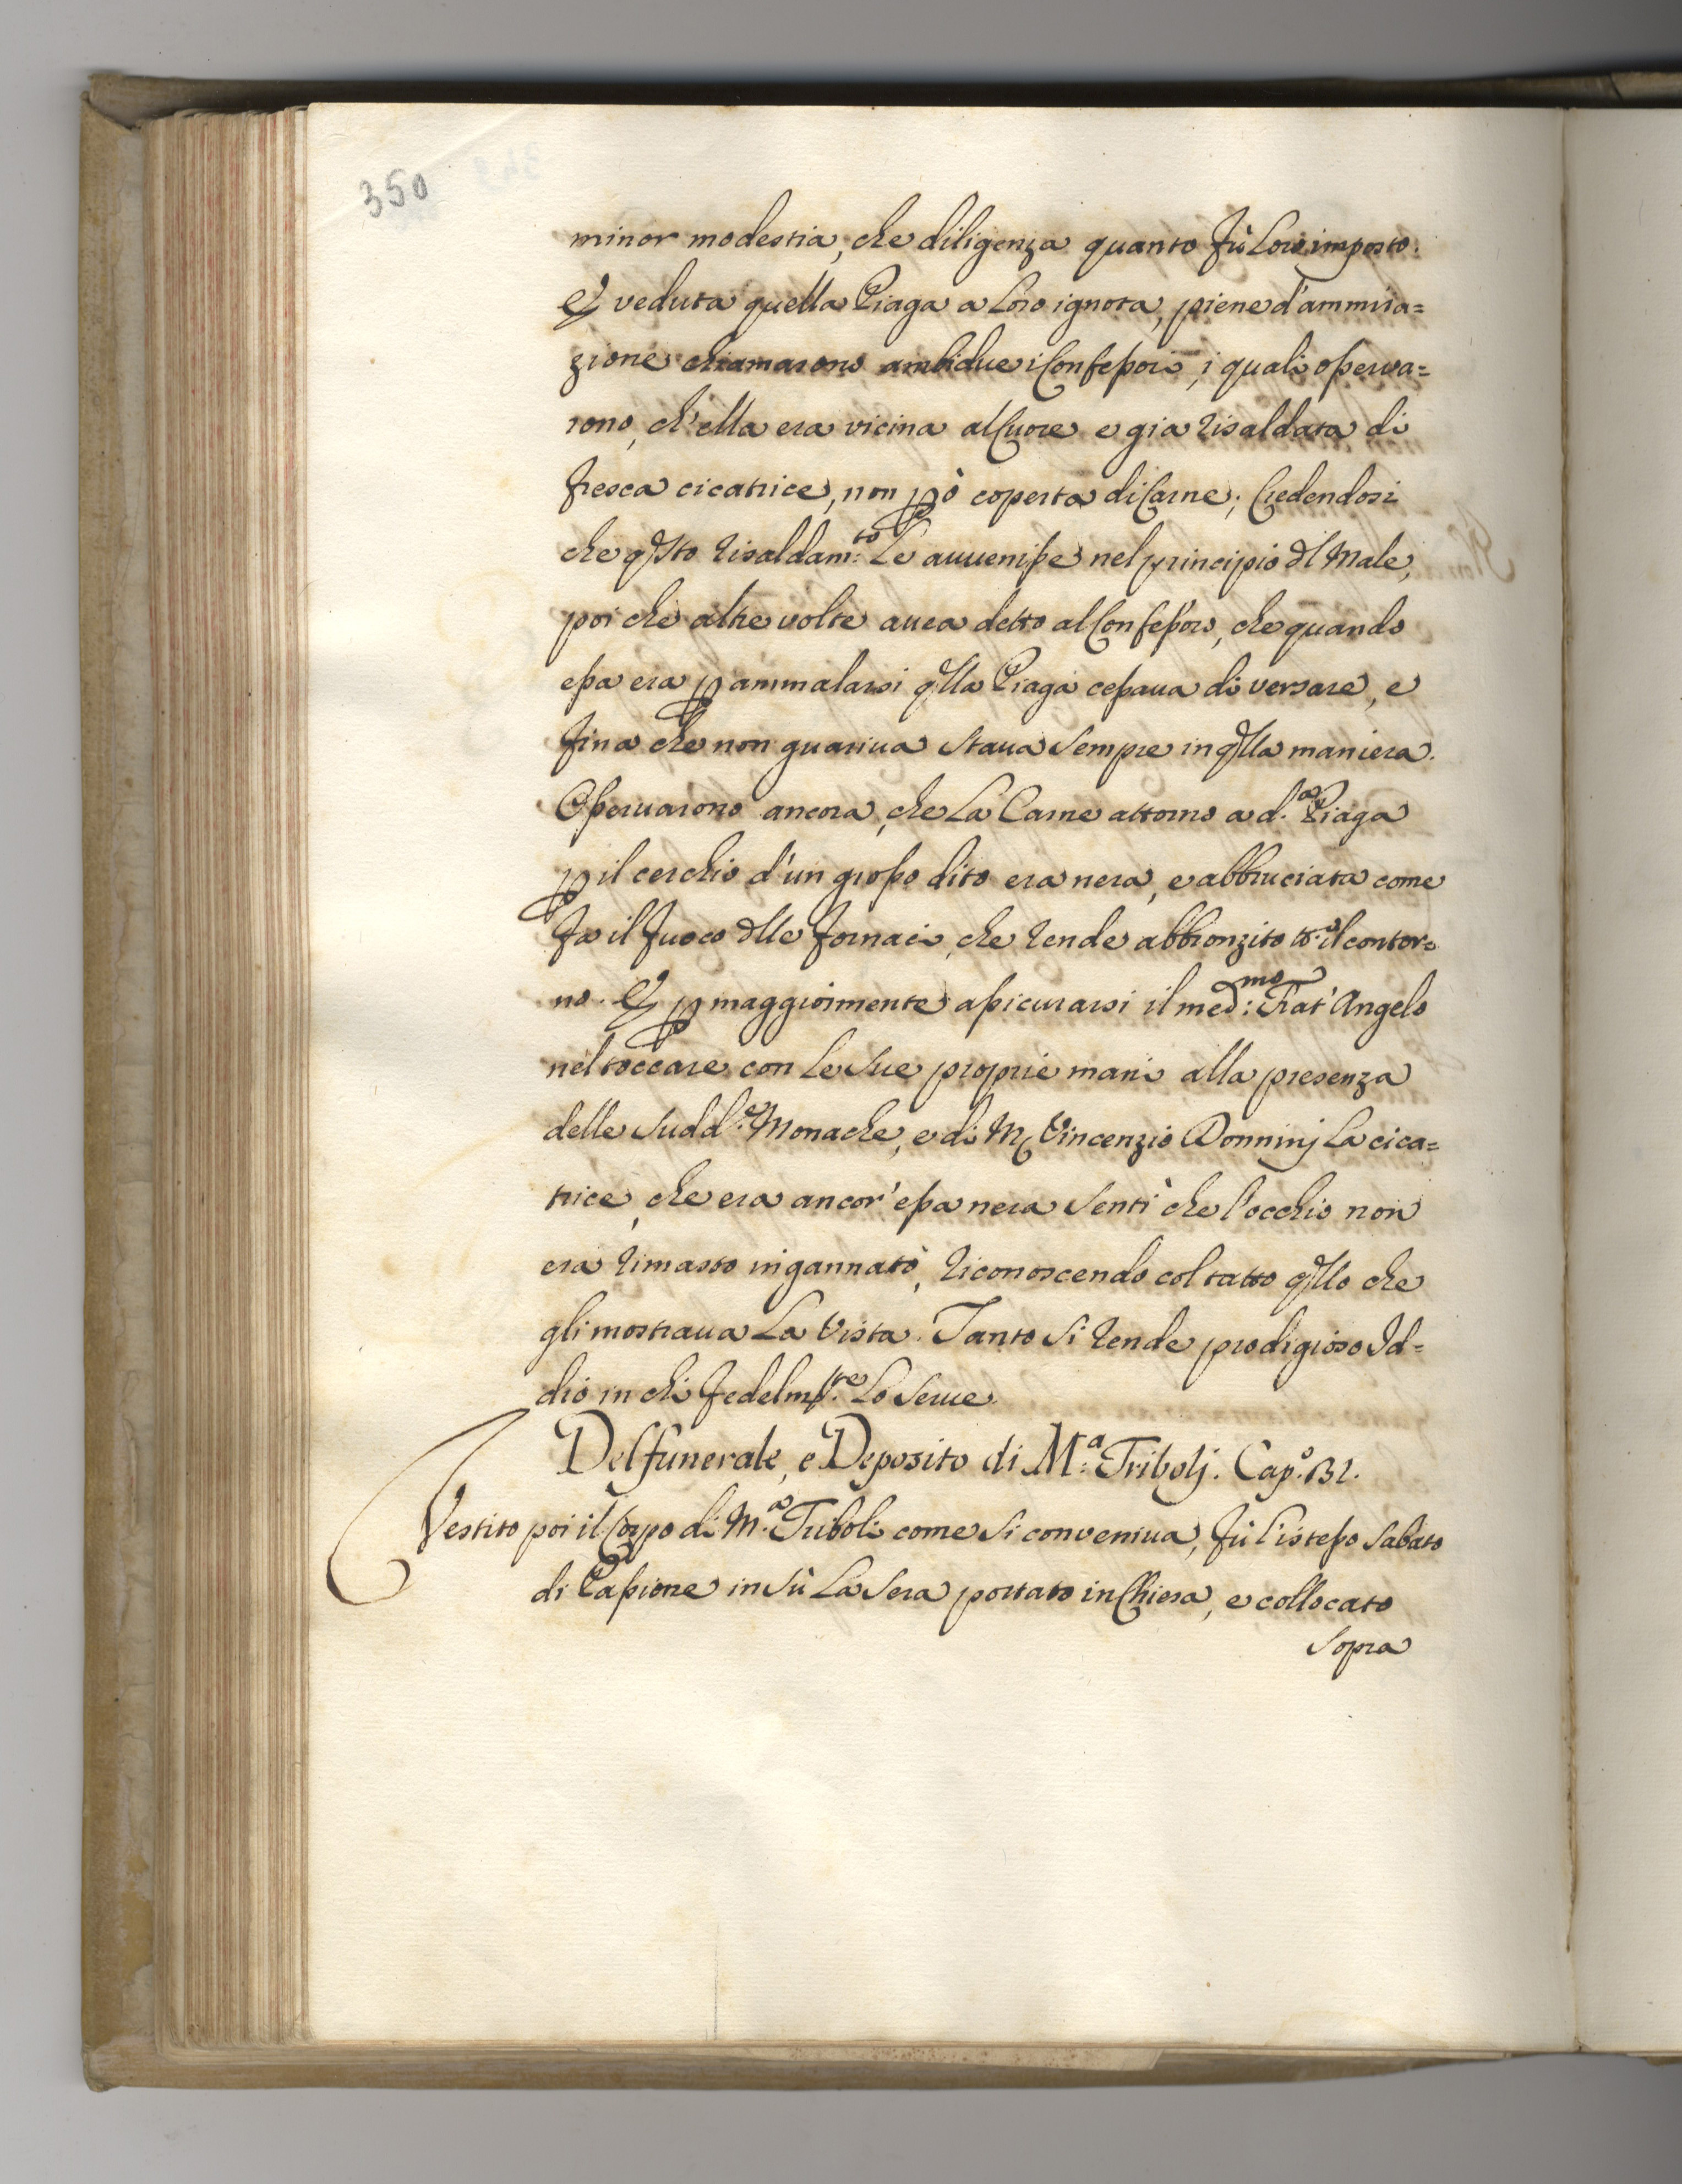 350
minor modestia, che diligenza quanto fù Loro imposto.
Et veduta quella Piaga a Loro ignota, piene d'ammira=
zione chiamarono ambidue i Confessori, i quali osserva=
rono, ch'ella era vicina al Cuore e gia risaldata di
fresca cicatrice, non pò coperta di Carne; Credendosi
che qsto risaldam:to Le auuenisse nel principio dl Male,
poi che altre uolte auea detto al Confessoro, che quando
essa era p ammalarsi qlla Piaga cessaua di versare, e
fin a che non guariua staua sempre in qlla maniera.
Osseruarono ancora, che La Carne attorno a d.a Piaga
p il cerchio d'un grosso dito era nera, e abbruciata come
fa il fuoco dlle fornaci, che rende abbronzito to.o il contor=
no. Et p maggiormente assicurarsi il med:mo Frat' Angelo
nel toccare con Le sue proprie mani alla presenza
delle sudd.e Monache, e di M. Vincenzio Donninj La cica=
trice, che era ancor' essa nera senti che l'occhio non
era rimasto ingannato, riconoscendo col tatto qllo che
gli mostraua La Vista. Tanto si rende prodigioso Id=
dio in chi fedelm.te Lo serue.
Del funerale, e Deposito di M:a Tribolj. Cap.o 132.
Vestito poi il Corpo di M.a Triboli come si conueniua, fù l'istesso sabato
di Passione in sù La sera portato in Chiesa, e collocato
sopra